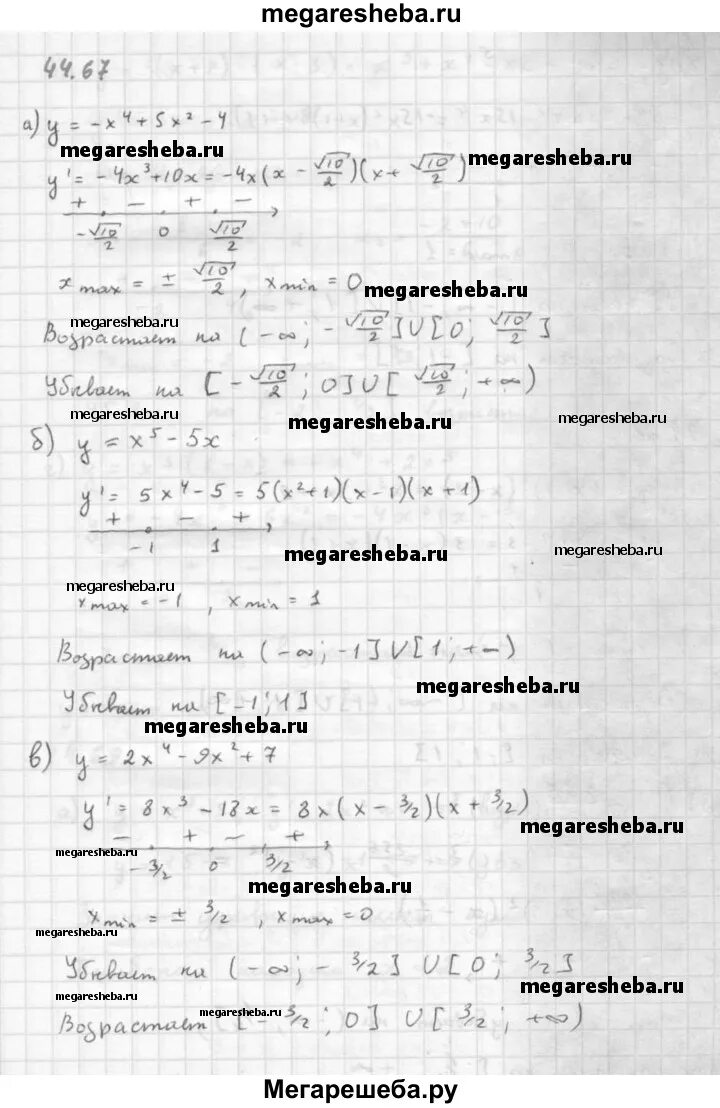 megaresheba.ru
44.67
а) y = -x⁴ + 5x² - 4
megaresheba.ru
megaresheba.ru
y' = -4x³+10x = -4x(x - √10/2)(x + √10/2)
+ - + -
-√10/2 0 √10/2
x max = ± √10/2, x min = 0
megaresheba.ru
megaresheba.ru
Возрастает на (-∞; -√10/2] U [0; √10/2]
Убывает на [-√10/2; 0] U [√10/2; +∞)
megaresheba.ru
megaresheba.ru
megaresheba.ru
б) y = x⁵ - 5x
y' = 5x⁴ - 5 = 5(x²+1)(x-1)(x+1)
+ - +
-1 1
megaresheba.ru
megaresheba.ru
megaresheba.ru
x max = -1, x min = 1
Возрастает на (-∞; -1] U [1; +∞)
megaresheba.ru
Убывает на [-1; 1]
megaresheba.ru
в) y = 2x⁴ - 9x² + 7
y' = 8x³ - 18x = 8x(x - 3/2)(x + 3/2)
megaresheba.ru
- + - +
megaresheba.ru
-3/2 0 3/2
megaresheba.ru
x min = ± 3/2, x max = 0
megaresheba.ru
Убывает на (-∞; -3/2] U [0; 3/2]
megaresheba.ru
megaresheba.ru
megaresheba.ru
Возрастает [-3/2; 0] U [3/2; +∞)
Мегарешеба.ру